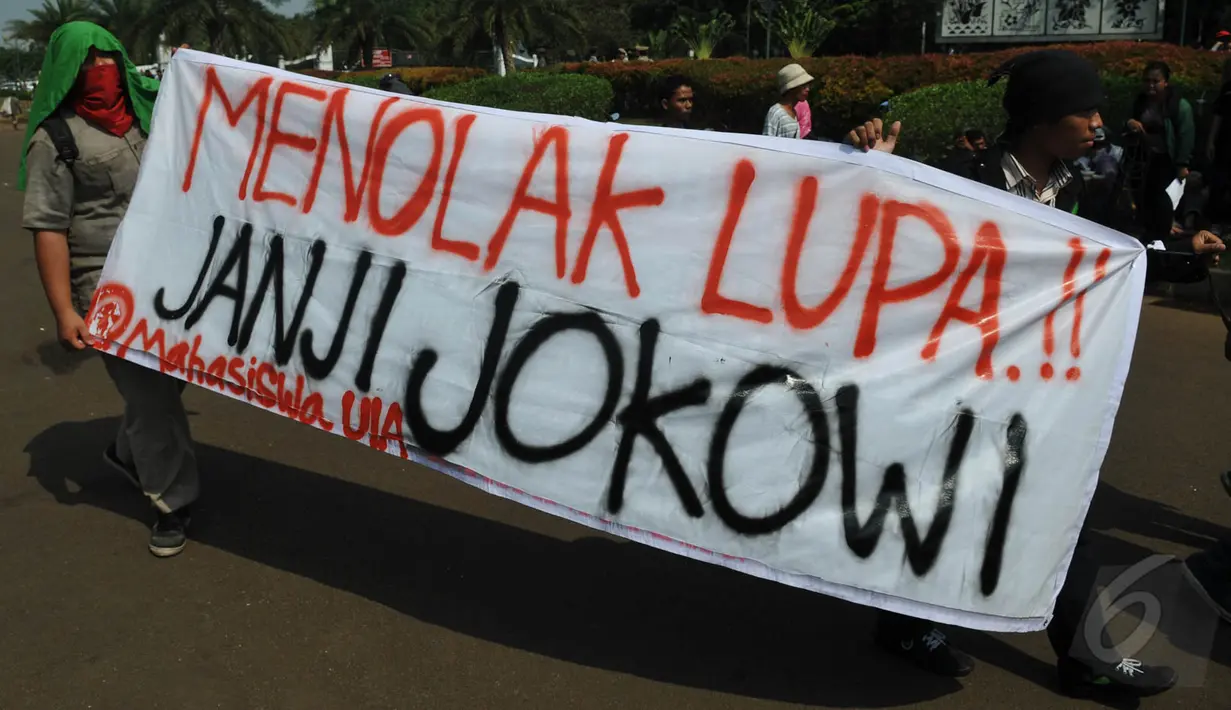 MENOLAK LUPA.!!
JANJI JOKOWI
@Mahasiswa UIA
6